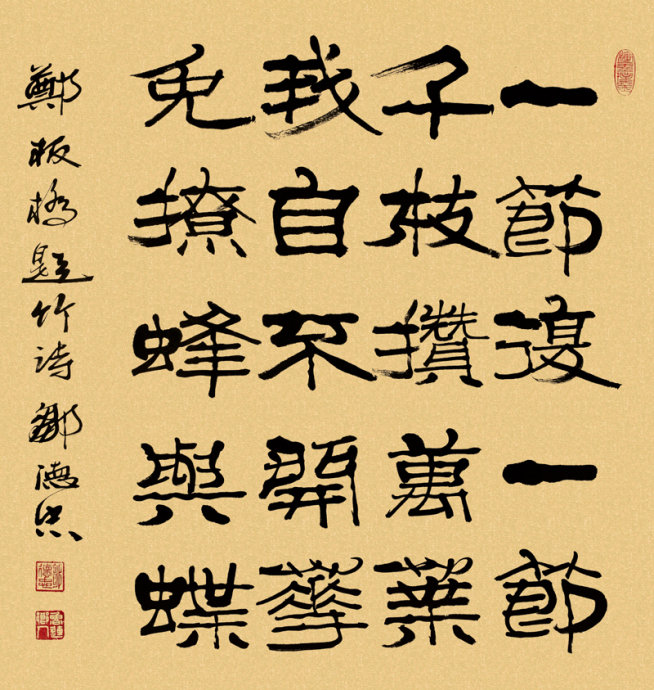 一節復一節
千枝攢萬葉
我自不開華
免撩蜂與蝶
鄭板橋題竹詩 鄒德忠